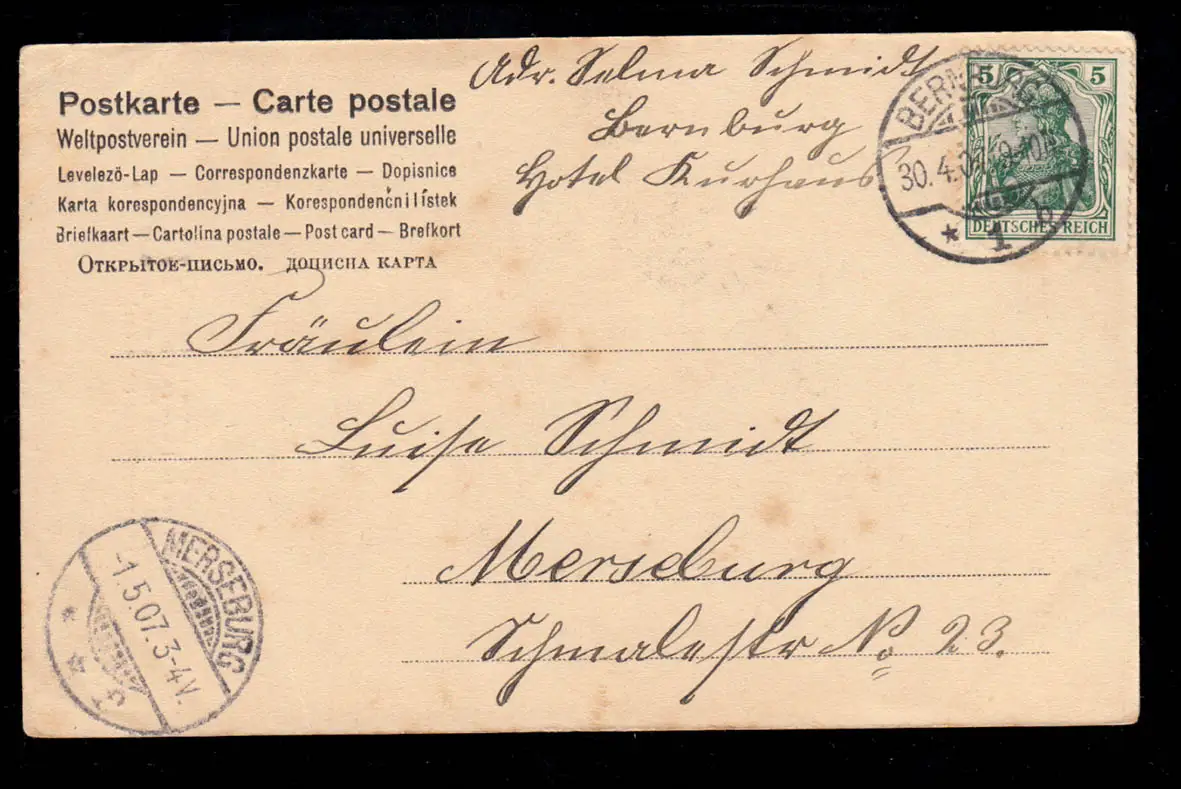 Postkarte — Carte postale
Weltpostverein — Union postale universelle
Levelezö-Lap — Correspondenzkarte — Dopisnice
Karta korespondencyjna — Korespondenčni lístek
Briefkaart — Cartolina postale — Post card — Brefkort
Открытое-письмо. дописна карта
Adr. Selma Schmidt
Bernburg
Hotel Kurhaus
5 5
DEUTSCHES REICH
BERNBURG
30.4.07. 9-10
* 1 b
Fräulein
Luise Schmidt
Merseburg
Schmalestr No 23.
MERSEBURG
-1.5.07. 3-4V.
* *